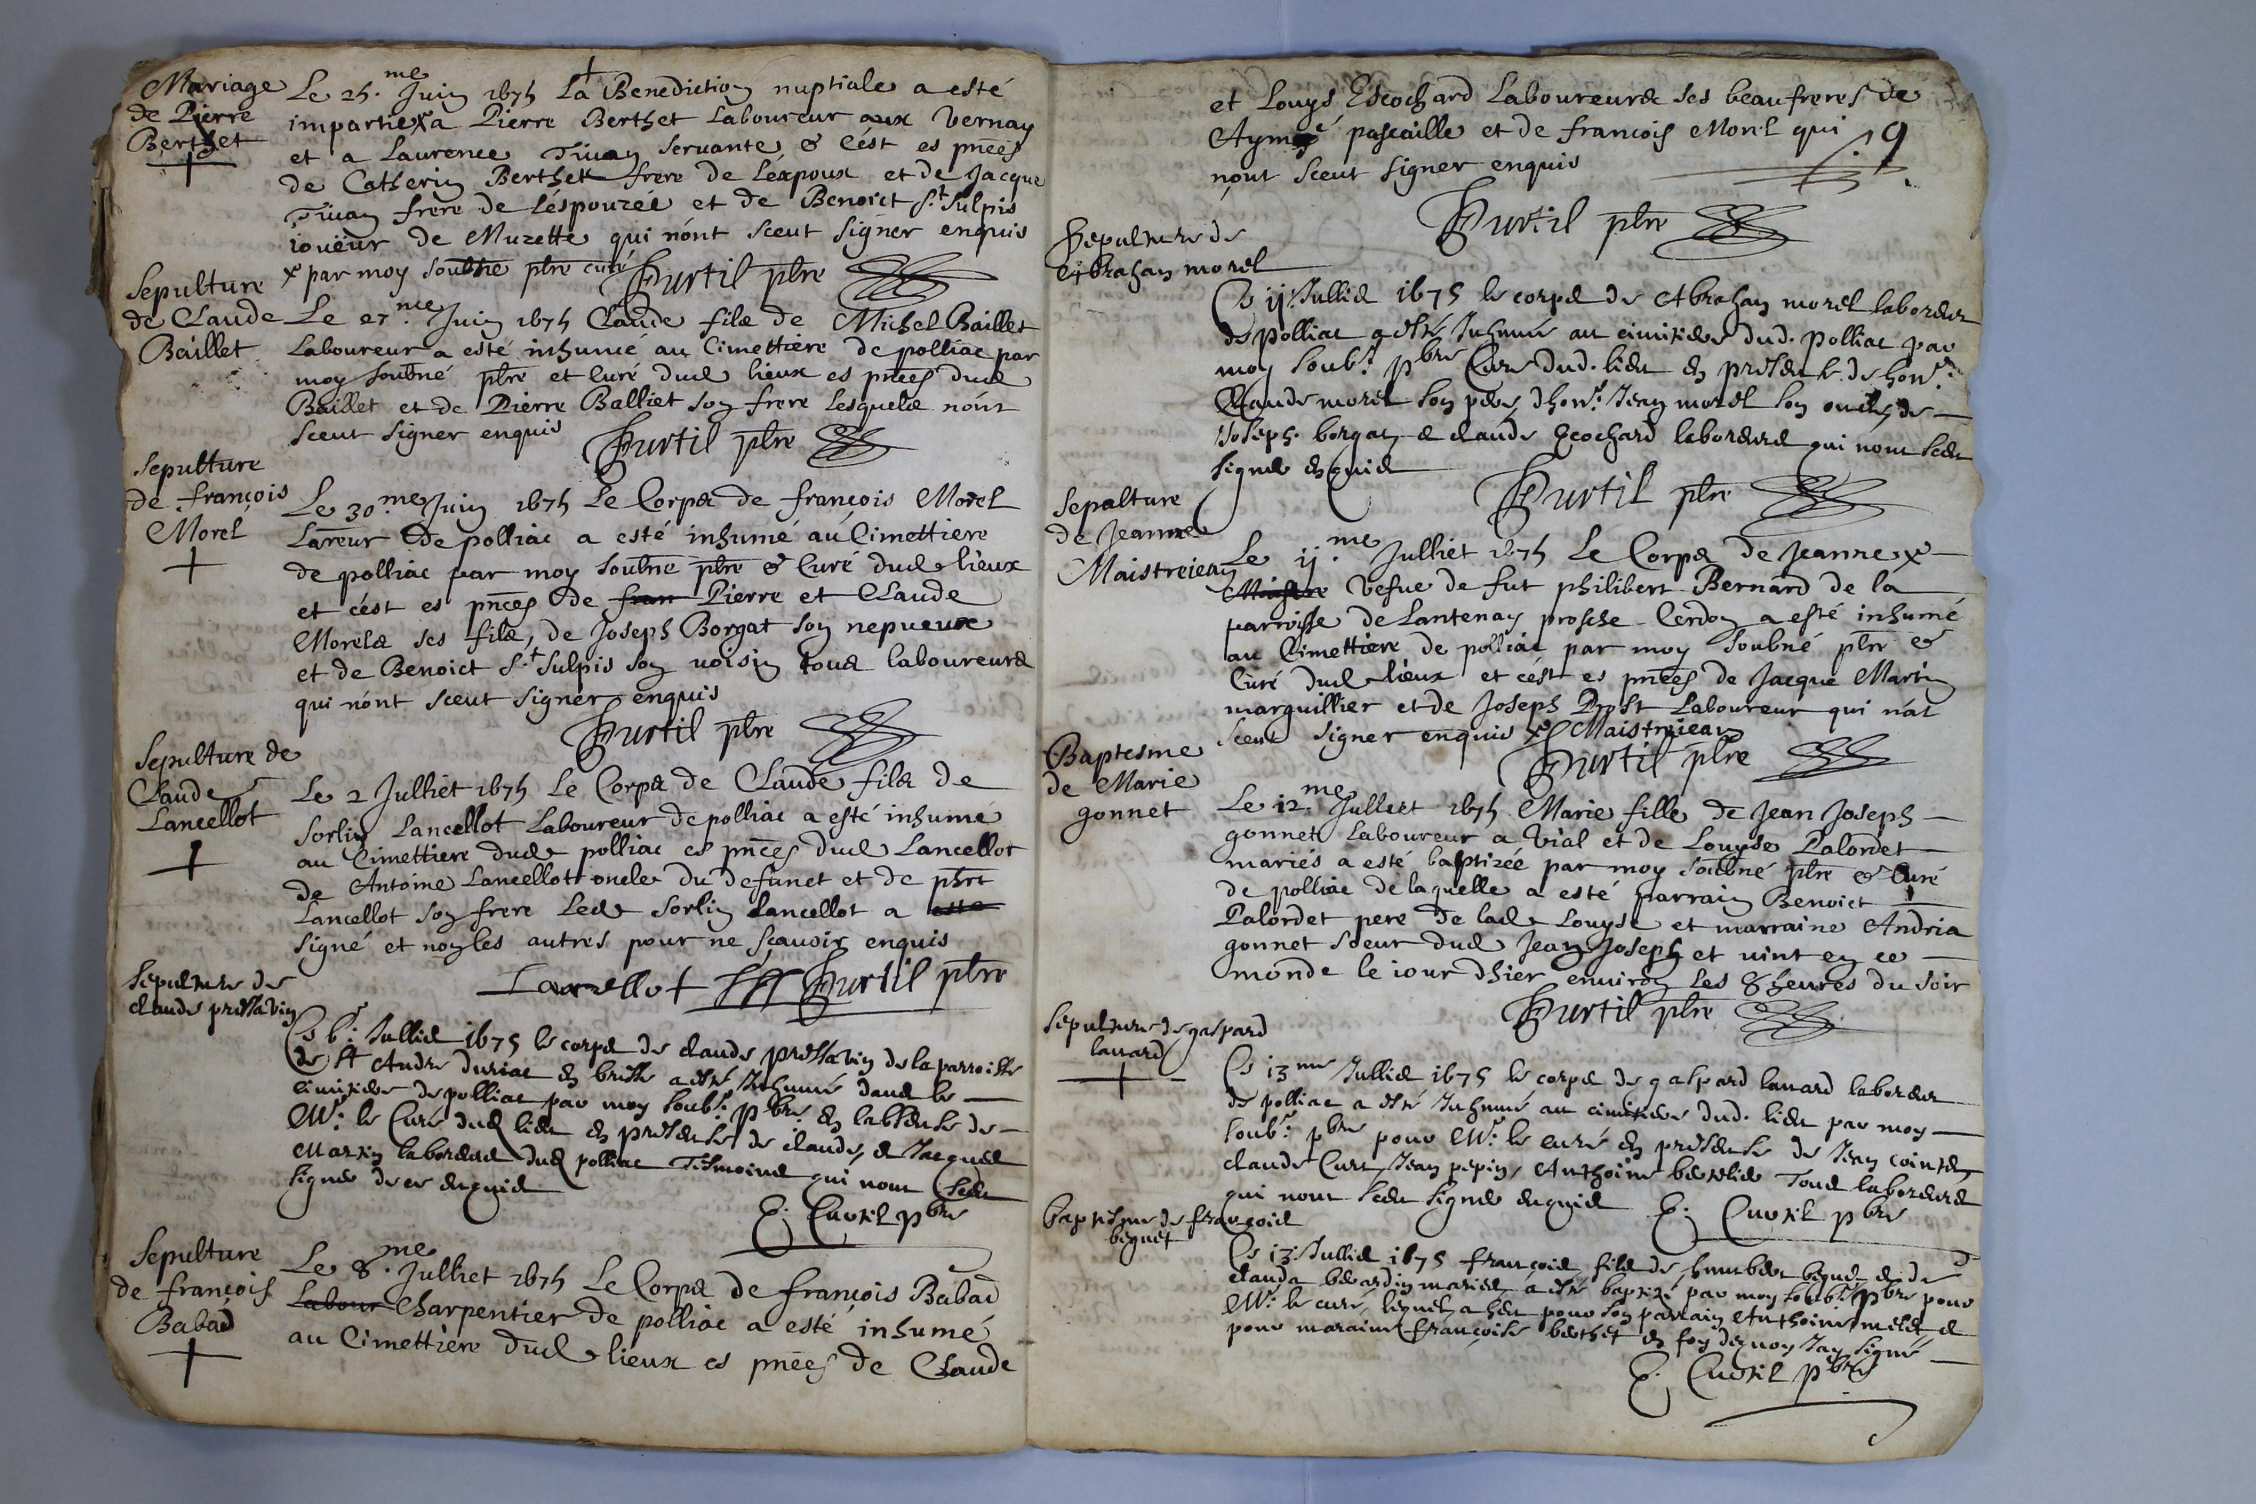 Mariage
de Pierre
Berthet
Le 25.me Juin 1675 La Benediction nuptiale a esté
impartie x a Pierre Berthet Laboureur aux Vernay
et a Laurence Tiuan seruante & cést es pnces
de Catherin Berthet frere de léxpoux et de Jacque
Tiuan frere de léspouzéé et de Benoict St Sulpis
ioüeur de Muzette qui nónt sceut signer enquis
x par moy soubne pbre curé Curtil pbre
Sepulture
de Claude
Baillet
Le 27me Juin 1675 Claude fils de Michel Baillet
Laboureur a esté inhumé au Cimettiere de polliac par
moy soubné pbre et Curé dud lieux es pnces dud
Baillet et de Pierre Balliet son frere Lesquels nónt
sceut signer enquis Curtil pbre
Sepulture
de françois
Morel
Le 30.me Juin 1675 Le Corps de françois Morel
Lareur de polliac a esté inhumé au Cimettiere
de polliac par moy soubne pbre & Curé dud lieux
et cést es pnces de fran Pierre et Claude
Morels ses fils, de Joseph Borgat son nepueux
et de Benoict St Sulpis son uoisin tous laboureurs
qui nónt sceut signer enquis
Curtil pbre
Sepulture de
Claude
Lancellot
Le 2 Julliet 1675 Le Corps de Claude fils de
Sorlin Lancellot Laboureur de polliac a esté inhumé
au Cimettiere dud polliac es pnces dud Lancellot
de Antoine Lancellot oncle du defunct et de phrt
Lancellot son frere Led Sorlin Lancellot a esté
signé et non les autres pour ne sçauoir enquis
Lancellot Curtil pbre
Sepulture de
claude pressavin
Ce 6e Jullied 1675 le corps de claude pressavin de la parroisse
de St Andre duriac en brisse a esté Inhumé dans le
cimitiere de polliac par moy soubs.e pbre en labsense de
Mr. le Curé dud lieu en presense de claude, & Jacques
Martin laboreurs dud polliac Tesmoins qui nont sceu
signer de ce enquis
E. Curtil pbre
Sepulture
de françois
Babad
Le 8.me Julliet 1675 Le Corps de françois Babad
Labour Charpentier de polliac a esté inhumé
au Cimettiere dud lieux es pnces de Claude
et Louys Escochard Laboureurs ses beaufreres de
Aymé pascaille et de françois Morel qui 19
nónt sceut signer enquis
Curtil pbre
Sepulture de
Abrahan morel
Ce 11e Jullied 1675 le corps de Abrahan morel laboreur
de polliac a esté Inhumé au cimitiere dud. polliac par
moy soub.e pbre Cure dud. lieu en presense de hon.e
Claude morel son pere, dhon.e Jean morel son oncle, de
Joseph borgat & claude Ecochard laboreurs qui nont sceu
signer enquis
Curtil pbre
Sepulture
de Jeanne
Maistreiean
Le 11.me Julliet 1675 Le Corps de Jeanne x
Maistre Vefue de fut philibert Bernard de la
parroisse de Lantenay prosche Cerdon a esté inhumé
au Cimettiere de polliac par moy Soubné pbre &
Curé dud lieux et cést es pnces de Jacque Martin
marguillier et de Joseph Prost Laboureur qui nat
sceut signer enquis x Maistreiean
Curtil pbre
Baptesme
de Marie
gonnet
Le 12.me Julliet 1675 Marie fille de Jean Joseph
gonnet Laboureur a Vial et de Louyse Palordet
mariés a esté baptizée par moy soubné pbre & Curé
de polliac de laquelle a esté parrain Benoict
Palordet pere de lad Louyse et marraine Andria
gonnet soeur dud Jean Joseph et uint en ce
monde le iour dhier enuiron les 8 heures du soir
Curtil pbre
Sepulture de gaspard
lauard
Ce 13me Jullied 1675 le corps de gaspard lauard laboreur
de polliac a esté Inhumé au cimitiere dud. lieu par moy
soub.e pbre pour Mr. le curé en presense de Jean cointet,
claude Curt, Jean pepin, Anthoine berelier Tous laboreurs
qui nont sceu signer enquis E. Curtil pbre
baptisme de françois
beguet
Ce 13e Jullied 1675 françois fils de humbert beguet & de
clauda beardin mariés, a esté baptizé par moy soub.e pbre pour
Mr. le curé, lequel a heu pour son parrain Anthoine melet &
pour maraine françoise berthet en foy de quoy Jay signé
E. Curtil pbre